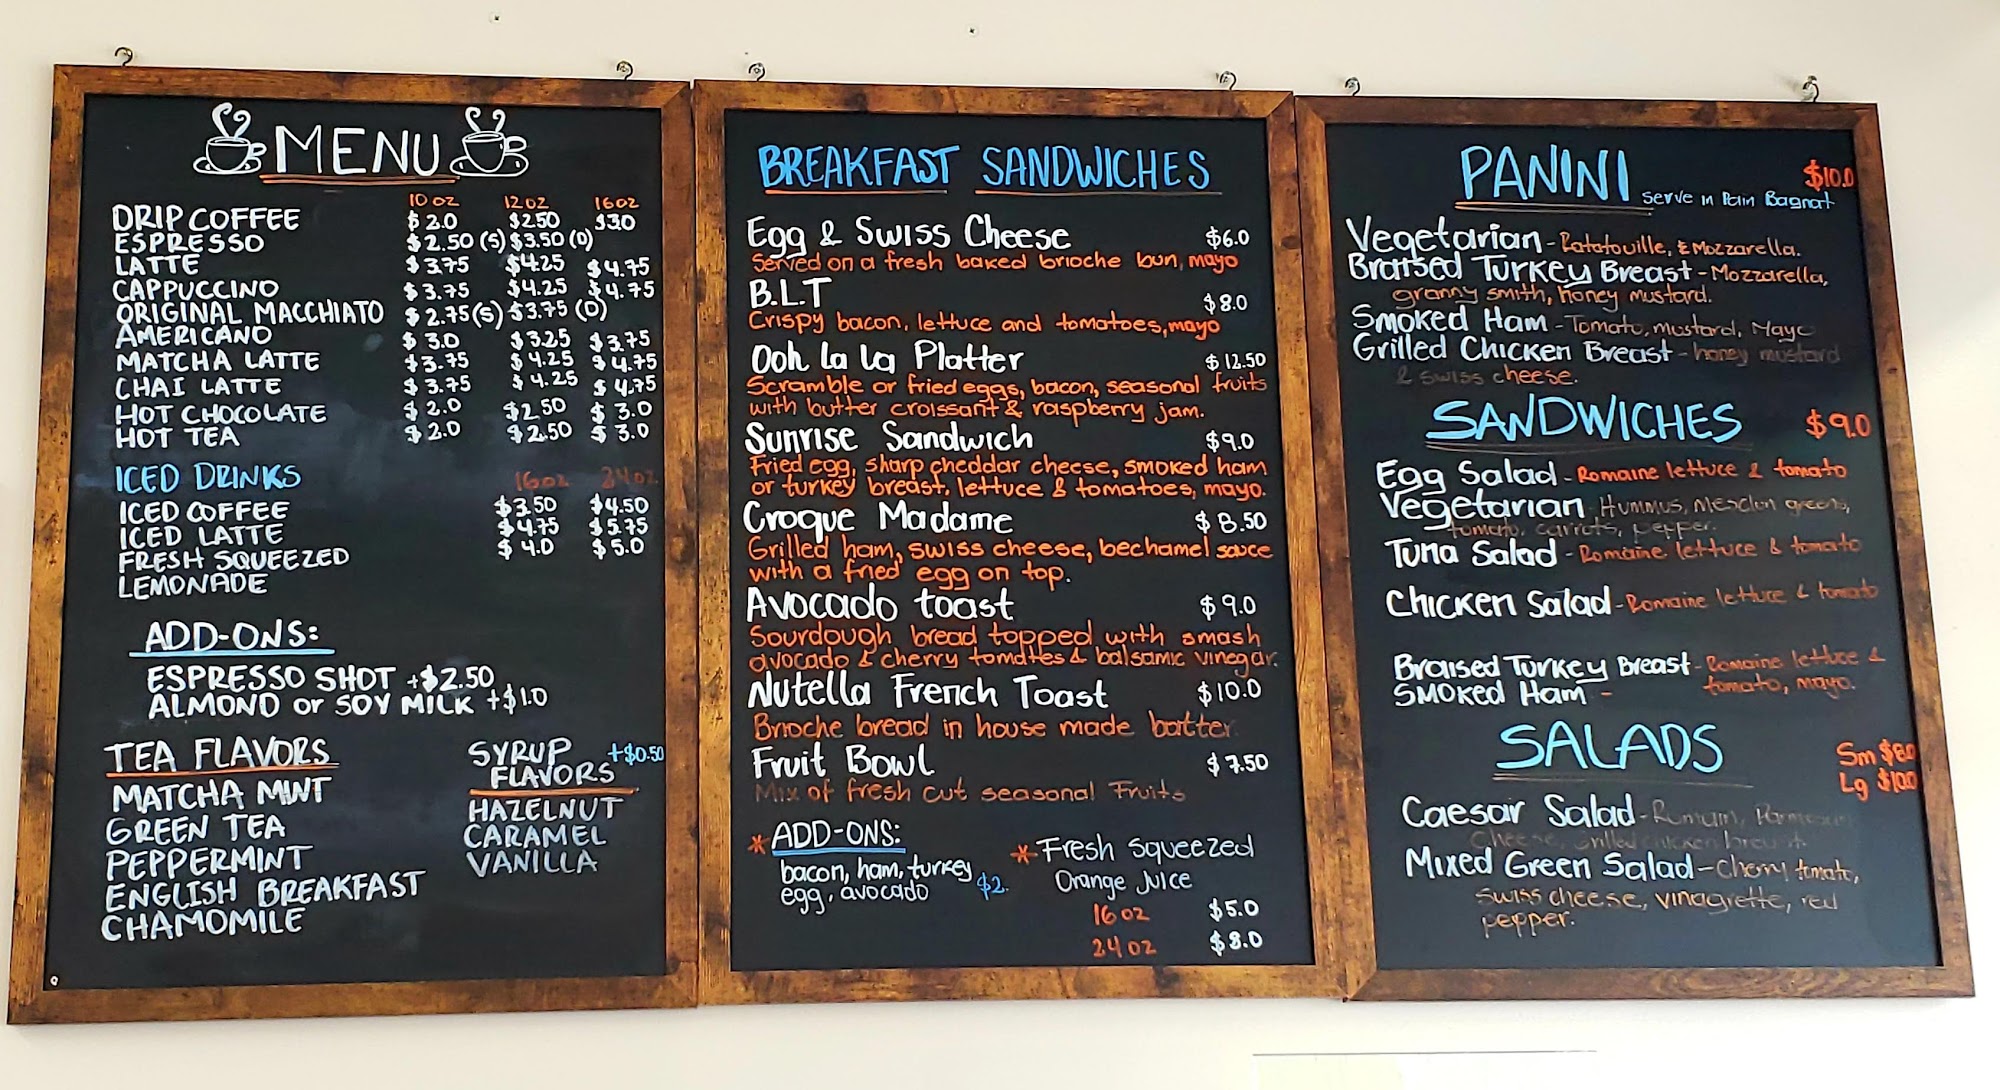 MENU
10 oz 12 oz 16 oz
DRIP COFFEE $2.0 $2.50 $3.0
ESPRESSO $2.50 (S) $3.50 (D)
LATTE $3.75 $4.25 $4.75
CAPPUCCINO $3.75 $4.25 $4.75
ORIGINAL MACCHIATO $2.75 (S) $3.75 (D)
AMERICANO $3.0 $3.25 $3.75
MATCHA LATTE $3.75 $4.25 $4.75
CHAI LATTE $3.75 $4.25 $4.75
HOT CHOCOLATE $2.0 $2.50 $3.0
HOT TEA $2.0 $2.50 $3.0
ICED DRINKS 16 oz 24 oz
ICED COFFEE $3.50 $4.50
ICED LATTE $4.75 $5.75
FRESH SQUEEZED $4.0 $5.0
LEMONADE
ADD-ONS:
ESPRESSO SHOT +$2.50
ALMOND or SOY MILK +$1.0
TEA FLAVORS
MATCHA MINT
GREEN TEA
PEPPERMINT
ENGLISH BREAKFAST
CHAMOMILE
SYRUP +$0.50
FLAVORS
HAZELNUT
CARAMEL
VANILLA
BREAKFAST SANDWICHES
Egg & Swiss Cheese $6.0
Served on a fresh baked brioche bun, mayo
B.L.T $8.0
Crispy bacon, lettuce and tomatoes, mayo
Ooh La La Platter $12.50
Scramble or fried eggs, bacon, seasonal fruits
with butter croissant & raspberry jam.
Sunrise Sandwich $9.0
Fried egg, sharp cheddar cheese, smoked ham
or turkey breast, lettuce & tomatoes, mayo.
Croque Madame $8.50
Grilled ham, swiss cheese, bechamel sauce
with a fried egg on top.
Avocado toast $9.0
Sourdough bread topped with smash
avocado & cherry tomattes & balsamic vinegar.
Nutella French Toast $10.0
Brioche bread in house made batter.
Fruit Bowl $7.50
Mix of fresh cut seasonal Fruits
* ADD-ONS:
bacon, ham, turkey
egg, avocado $2.
* Fresh Squeezed
Orange Juice
16 oz $5.0
24 oz $8.0
PANINI $10.0
Serve in Pain Bagnat
Vegetarian - Ratatouille, & Mozzarella.
Braised Turkey Breast - Mozzarella,
granny smith, honey mustard.
Smoked Ham - Tomato, mustard, Mayo
Grilled Chicken Breast - honey mustard
& swiss cheese.
SANDWICHES $9.0
Egg Salad - Romaine lettuce & tomato
Vegetarian Hummus, mesclun greens,
tomato, carrots, pepper.
Tuna Salad - Romaine lettuce & tomato
Chicken Salad - Romaine lettuce & tomato
Braised Turkey Breast - Romaine lettuce &
Smoked Ham - tomato, mayo.
SALADS Sm $8.0
Lg $10.0
Caesar Salad - Romain, Parmesan
Cheese, Grilled chicken breast.
Mixed Green Salad - Cherry tomato,
swiss cheese, vinagrette, red
pepper.